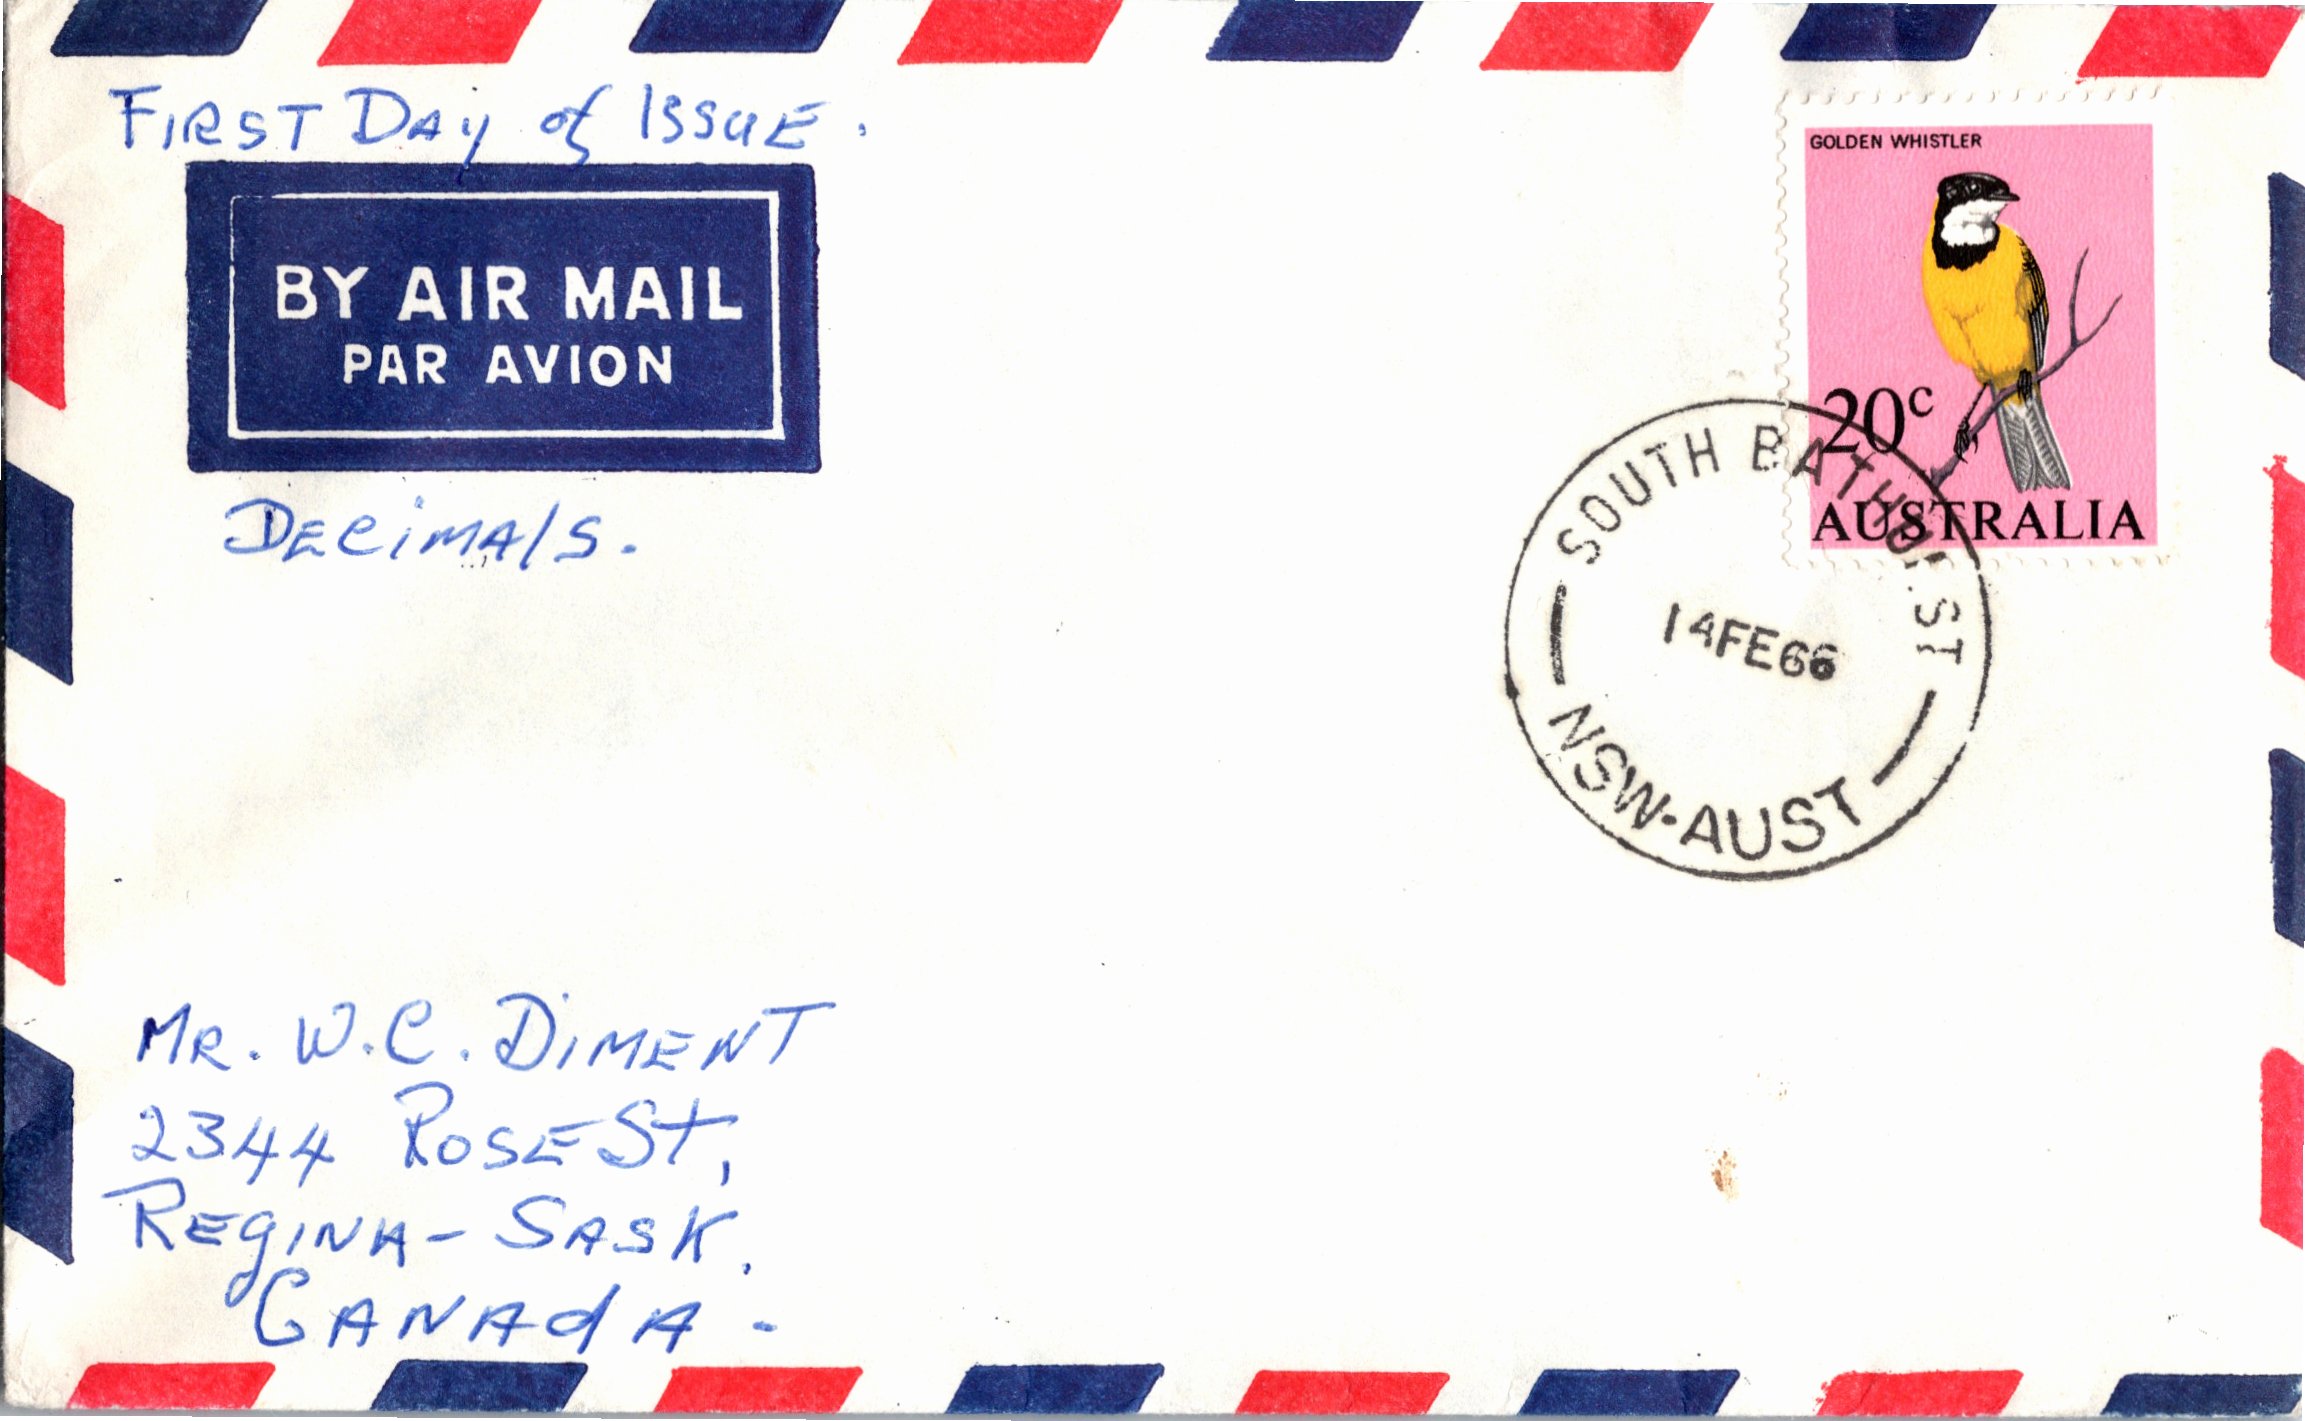 First Day of Issue.
BY AIR MAIL
PAR AVION
Decimals.
GOLDEN WHISTLER
20c
AUSTRALIA
SOUTH BATHURST
14FE66
NSW·AUST
Mr. W.C. Diment
2344 Rose St,
Regina - Sask.
Canada -